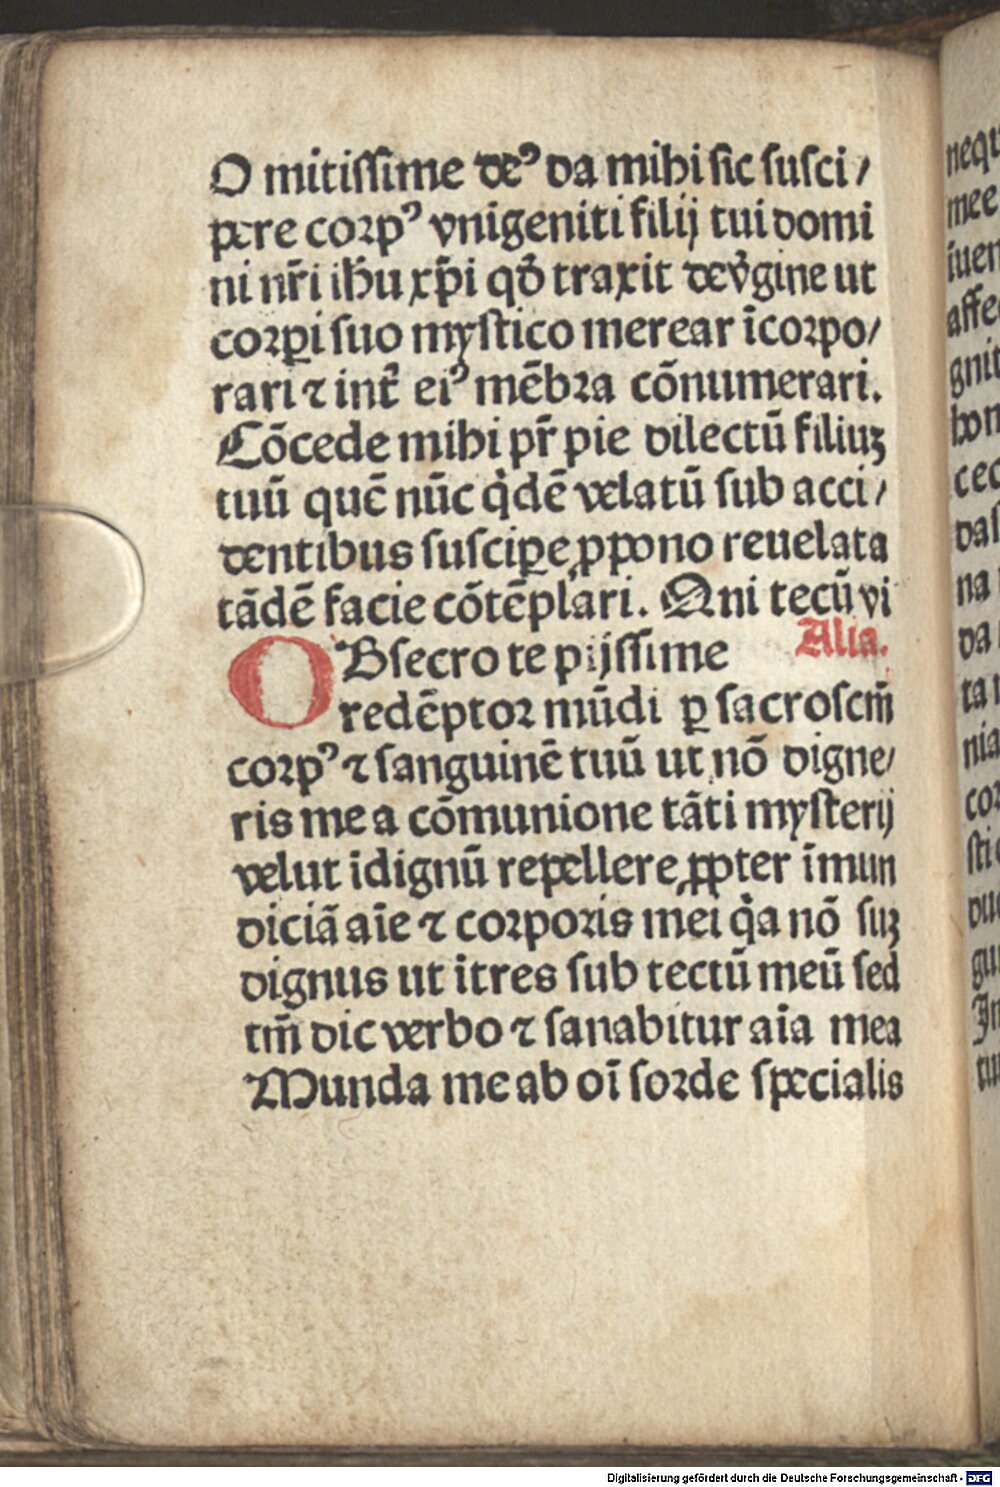 O mitiſſime deꝰ da mihi ſic ſuſci/
pere corpꝰ vnigeniti filij tui domi
ni nr̃i ih̃u xp̃i qđ traxit de vg̾ine ut
corꝑi ſuo myſtico merear ĩcorpo/
rari ⁊ int̾ eiꝰ mẽbra cõnumerari.
Cõcede mihi pr̃ pie dilectũ filiuꝫ
tuũ quẽ nũc qͥdẽ velatũ ſub acci/
dentibus ſuſciꝑe ꝓpono reuelata
tãdẽ facie cõtẽplari. Qui tecũ vi
Alia.
OBſecro te pijſſime
redẽptor mũdi ꝑ ſacroſcm̃
corpꝰ ⁊ ſanguinẽ tuũ ut nõ digne/
ris me a cõmunione tãti myſterij
velut ĩdignũ repellere ꝓpter ĩmun
diciã aĩe ⁊ corporis mei qͥa nõ ſuꝫ
dignus ut itres ſub tectũ meũ ſed
tm̃ dic verbo ⁊ ſanabitur aĩa mea
Munda me ab oĩ ſorde ſpecialis
Digitalisierung gefördert durch die Deutsche Forschungsgemeinschaft - DFG